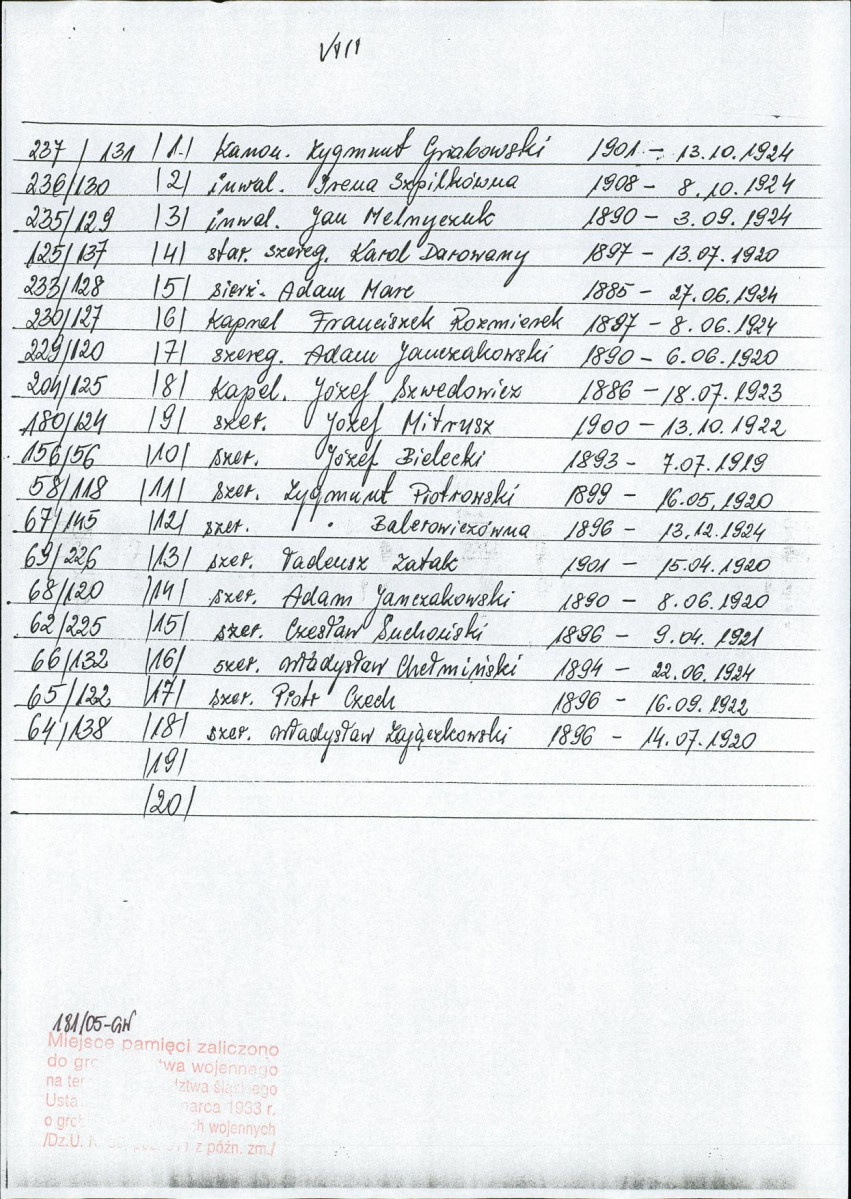 VIII
237 / 131 /1./ Kanon. Zygmunt Grabowski 1901 - 13.10.1924
236/130 /2/ inwal. Irena Szpilkówna 1908 - 8.10.1924
235/129 /3/ inwal. Jan Melnyczuk 1890 - 3.09.1924
125/137 /4/ star. szereg. Karol Darowany 1897 - 13.07.1920
233/128 /5/ sierż. Adam Marc 1885 - 27.06.1924
230/127 /6/ Kapral Franciszek Rozmierek 1897 - 8.06.1924
229/120 /7/ szereg. Adam Janczakowski 1890 - 6.06.1920
204/125 /8/ Kapel. Józef Szwedowicz 1886 - 18.07.1923
180/124 /9/ szer. Józef Mitrusz 1900 - 13.10.1922
156/56 /10/ szer. Józef Bielecki 1893 - 7.07.1919
58/118 /11/ szer. Zygmunt Piotrowski 1899 - 16.05.1920
67/145 /12/ szer. Balerowiczówna 1896 - 13.12.1924
69/226 /13/ szer. Tadeusz Zatak 1901 - 15.04.1920
68/120 /14/ szer. Adam Janczakowski 1890 - 8.06.1920
62/225 /15/ szer. Czesław Suchoński 1896 - 9.04.1921
66/132 /16/ szer. Władysław Chełmiński 1894 - 22.06.1924
65/122 /17/ szer. Piotr Czech 1896 - 16.09.1922
64/138 /18/ szer. Władysław Zajączkowski 1896 - 14.07.1920
/19/
/20/
181/05-GW
Miejsce pamięci zaliczono
do wojennego
na śląskiego
marca 1933 r.
o wojennych
/Dz.U. z późn. zm./